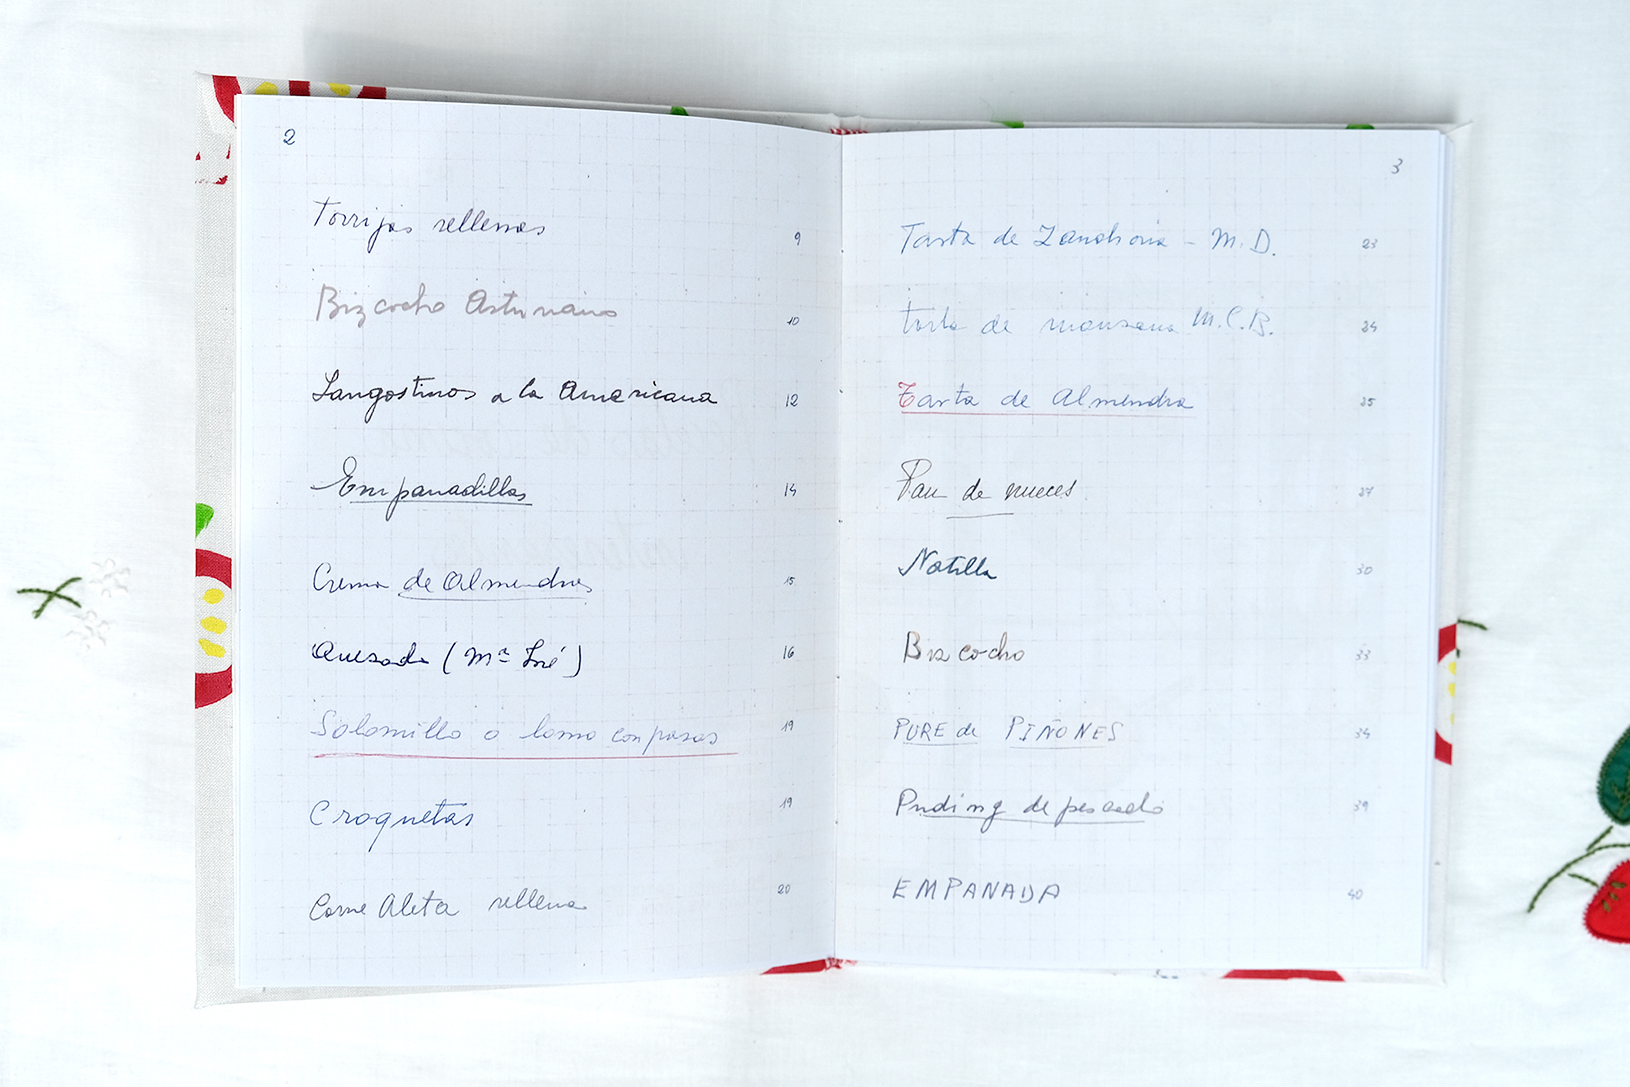 2
Torrijas rellenas 9
Bizcocho Asturiano 10
Langostinos a la Americana 12
Empanadillas 14
Crema de Almendras 15
Quesada (Mª José) 16
Solomillo o lomo con pasas 19
Croquetas 19
Carne Aleta rellena 20
3
Tarta de Zanahoria - M.D. 23
tarta de manzana M.C.B. 24
Tarta de Almendra 25
Pan de nueces 27
Natilla 30
Bizcocho 33
PURE de PIÑONES 34
Puding de pescado 39
EMPANADA 40